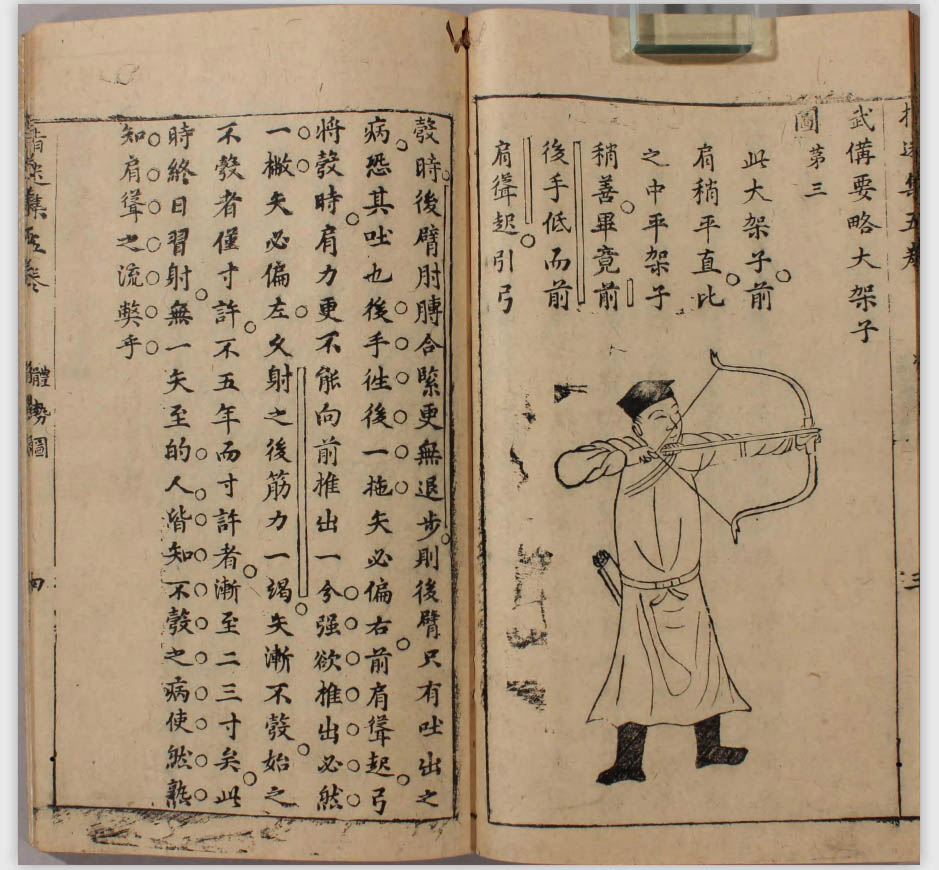 集五卷
武備要略大架子
圖第三
此大架子前
肩稍平直比
之中平架子
稍善畢竟前
後手低而前
肩聳起引弓
彀時後臂肘膊合緊更無退步則後臂只有吐出之
病恐其吐也後手徃後一拖矢必偏右前肩聳起弓
將彀時肩力更不能向前推出一分强欲推出必然
一撇矢必偏左久射之後筋力一竭矢漸不彀始之
不彀者僅寸許不五年而寸許者漸至二三寸矣此
時終日習射無一矢至的人皆知不彀之病使然熟
知肩聳之流弊乎
指迷集五卷 體勢圖